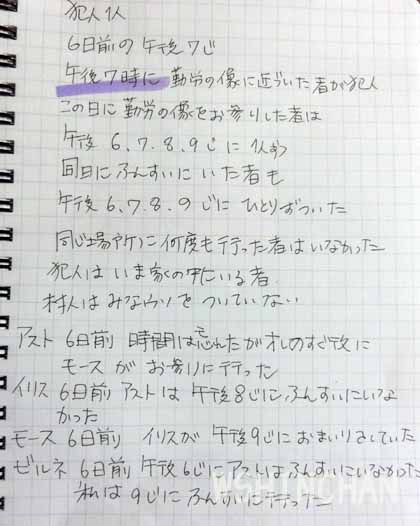 犯人1人
6日前の午後7じ
午後7時に勤労の像に近づいた者が犯人
この日に勤労の像をお参りした者は
午後 6、7、8、9じに 1人ずつ
同日にふんすいにいた者も
午後 6、7、8、9じに ひとりずついた
同じ場所に何度も行った者はいなかった
犯人はいま家の中にいる者
村人はみなウソをついていない
アスト 6日前 時間は忘れたがオレのすぐ後に
モースがお参りに行った
イリス 6日前 アストは午後8じに、ふんすいにいな
かった
モース 6日前 イリスが午後9じにおまいりをしていた
ゼルネ 6日前 午後6じにアストはふんすいにいなかった
おれは9じにふんすいに行った
WSHINCHAN